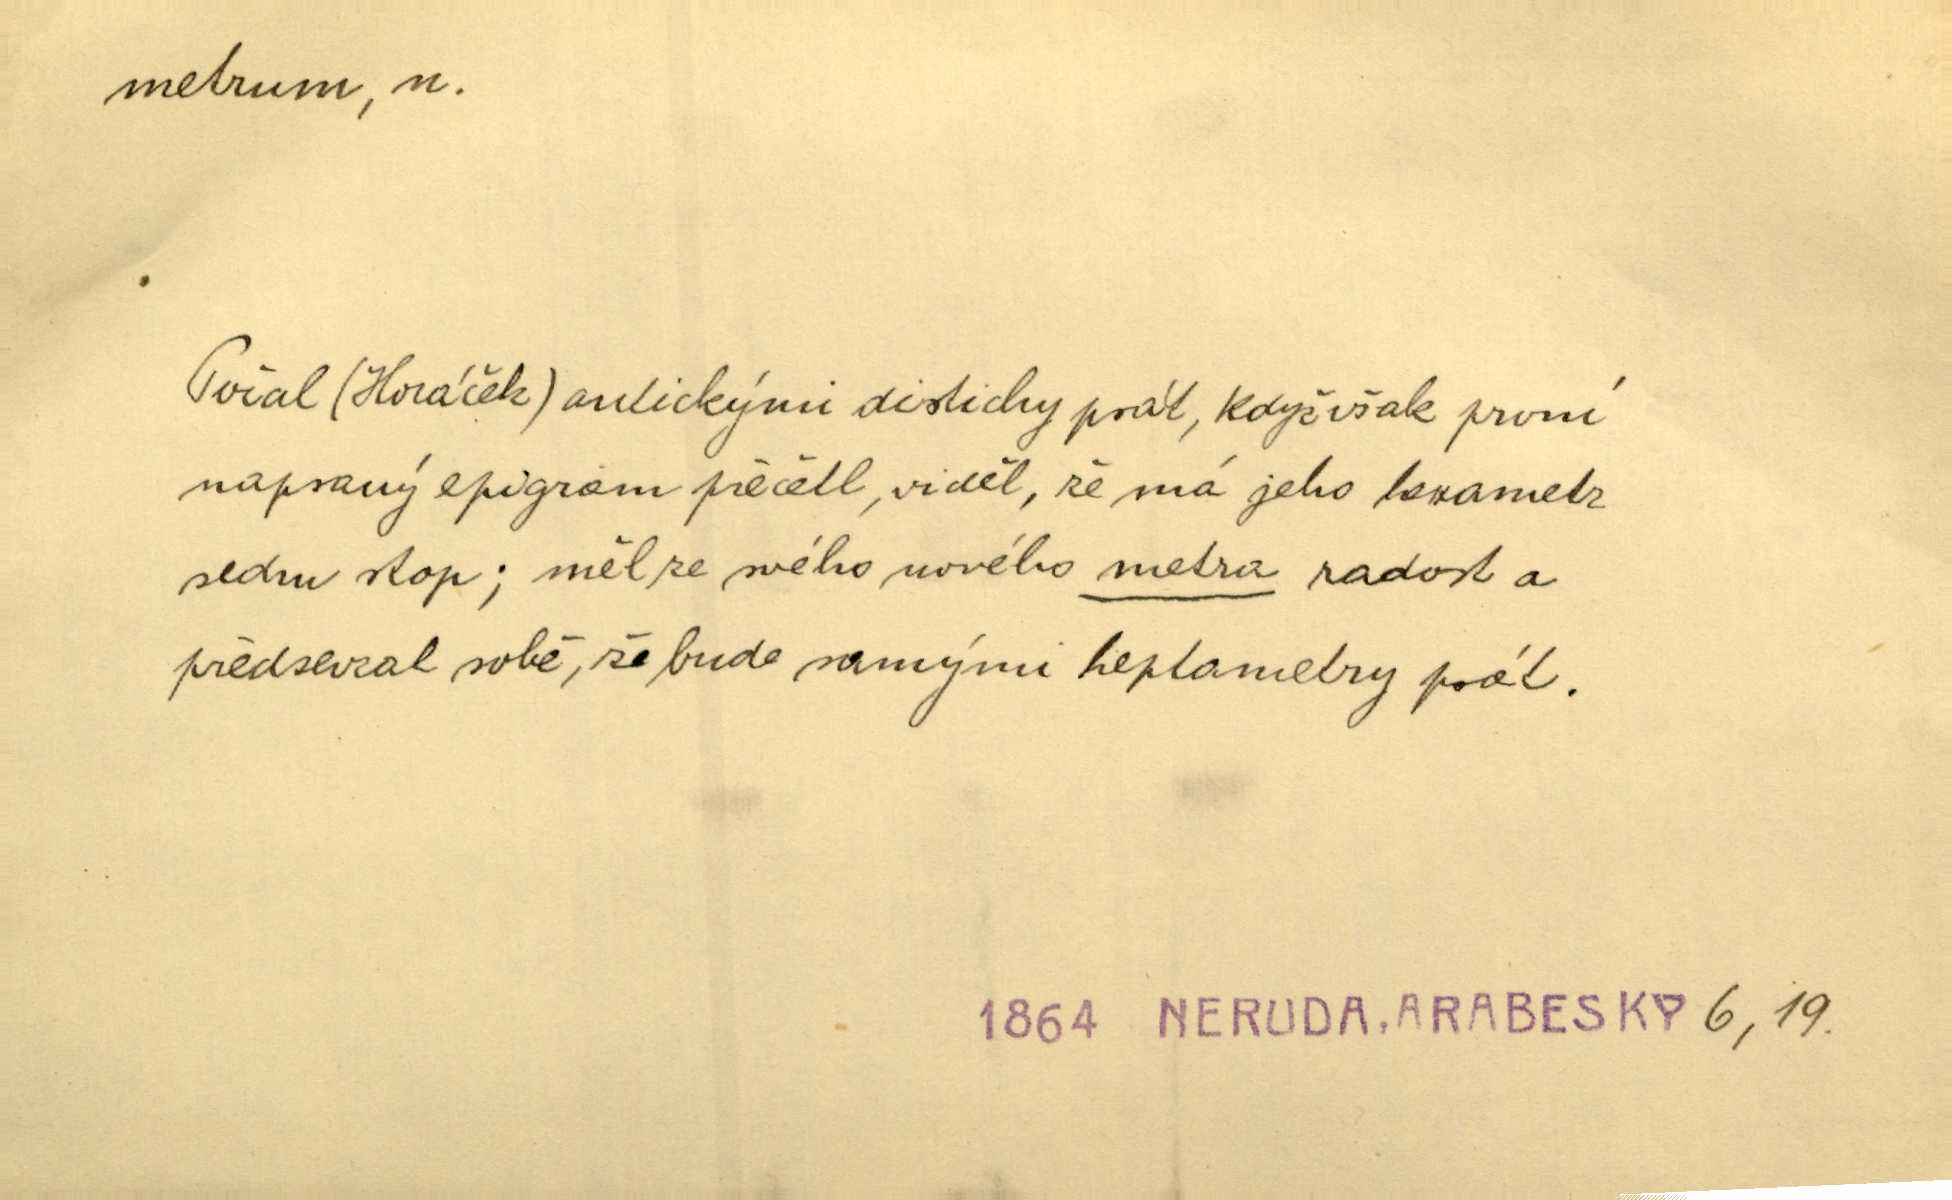 metrum, n.
Počal (Horáček) antickými distichy psát, když však první
napsaný epigram přečetl, viděl, že má jeho hexametr
sedm stop; měl ze svého nového metra radost a
předsevzal sobě, že bude samými heptametry psát.
1864 NERUDA, ARABESKY 6, 19.